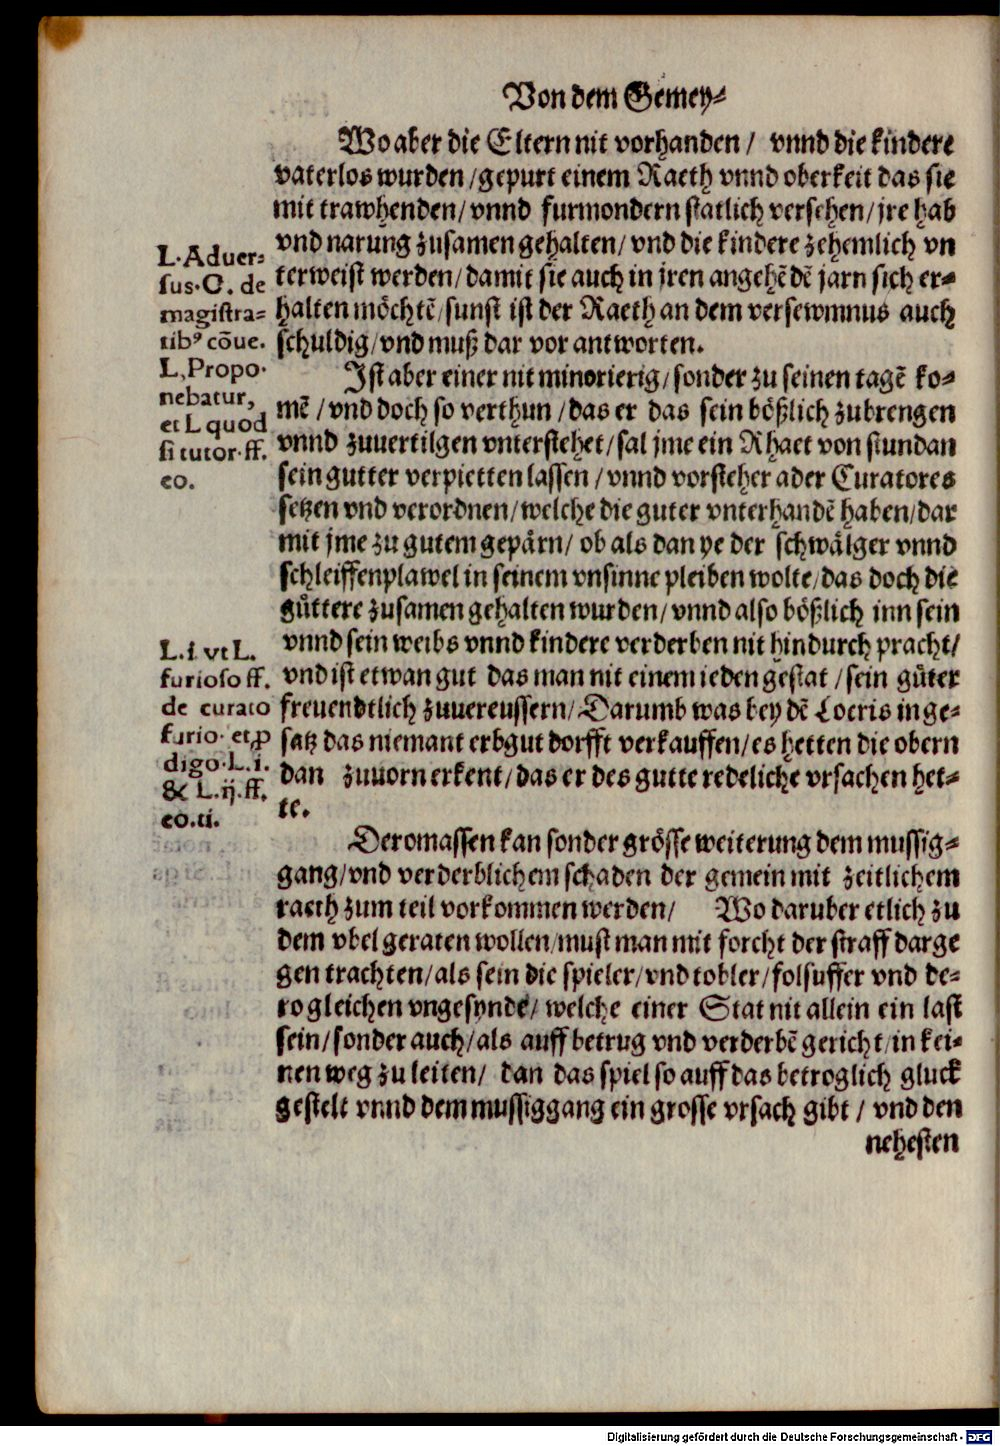 Von dem Gemey⸗
Wo aber die Eltern nit vorhanden / vnnd die kindere
vaterlos wurden / gepurt einem Raeth vnnd oberkeit das sie
mit trawhenden / vnnd furmondern statlich versehen / jre hab
vnd narung zusamen gehalten / vnd die kindere zehemlich vn
terweist werden / damit sie auch in jren angehēdē jarn sich er⸗
halten möchtē / sunst ist der Raeth an dem versewmnus auch
schuldig / vnd muß dar vor antworten.
L. Aduer⸗
sus. C. de
magistra⸗
tib⁹ cōue.
L, Propo.
nebatur,
et L quod
si tutor. ff.
eo.
Ist aber einer nit minorierig / sonder zu seinen tagē ko⸗
mē / vnd doch so verthun / das er das sein bößlich zubrengen
vnnd zuuertilgen vnterstehet / sal jme ein Rhaet von stundan
sein gutter verpietten lassen / vnnd vorsteher ader Curatores
setzen vnd verordnen / welche die guter vnterhandē haben / dar
mit jme zu gutem gepärn / ob als dan ye der schwälger vnnd
schleiffenplawel in seinem vnsinne pleiben wolte / das doch die
güttere zusamen gehalten wurden / vnnd also bößlich inn sein
vnnd sein weibs vnnd kindere verderben nit hindurch pracht /
vnd ist etwan gut das man nit einem ieden gestat / sein güter
freuendtlich zuuereussern / Darumb was bey dē Locris in ge⸗
satz das niemant erbgut dorfft verkauffen / es hetten die obern
dan zuuorn erkent / das er des gutte redeliche vrsachen het⸗
te.
L. i vt L.
furioso ff.
de curato
furio. et ꝓ
digo. L. i.
& L. ij. ff.
eo. ti.
Deromassen kan sonder grösse weiterung dem mussig⸗
gang / vnd verderblichem schaden der gemein mit zeitlichem
raeth zum teil vorkommen werden / Wo daruber etlich zu
dem vbel geraten wollen / must man mit forcht der straff darge
gen trachten / als sein die spieler / vnd tobler / folsuffer vnd de⸗
rogleichen vngesynde / welche einer Stat nit allein ein last
sein / sonder auch / als auff betrug vnd verderbē gericht / in kei⸗
nen weg zu leiten / dan das spiel so auff das betroglich gluck
gestelt vnnd dem mussiggang ein grosse vrsach gibt / vnd den
nehesten
Digitalisierung gefördert durch die Deutsche Forschungsgemeinschaft - DFG